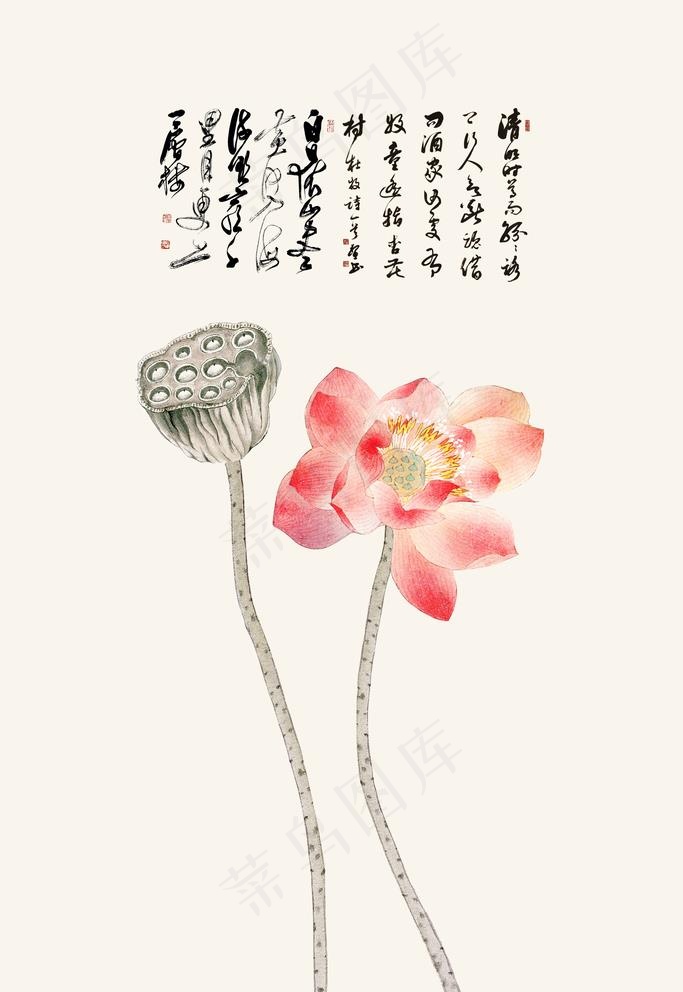 清明时节雨纷纷路
上行人欲断魂借
问酒家何处有
牧童遥指杏花
村 杜牧诗一首
白日依山尽
黄河入海
流欲穷千
里目更上
一层楼
菜鸟图库
菜鸟图库
菜鸟图库